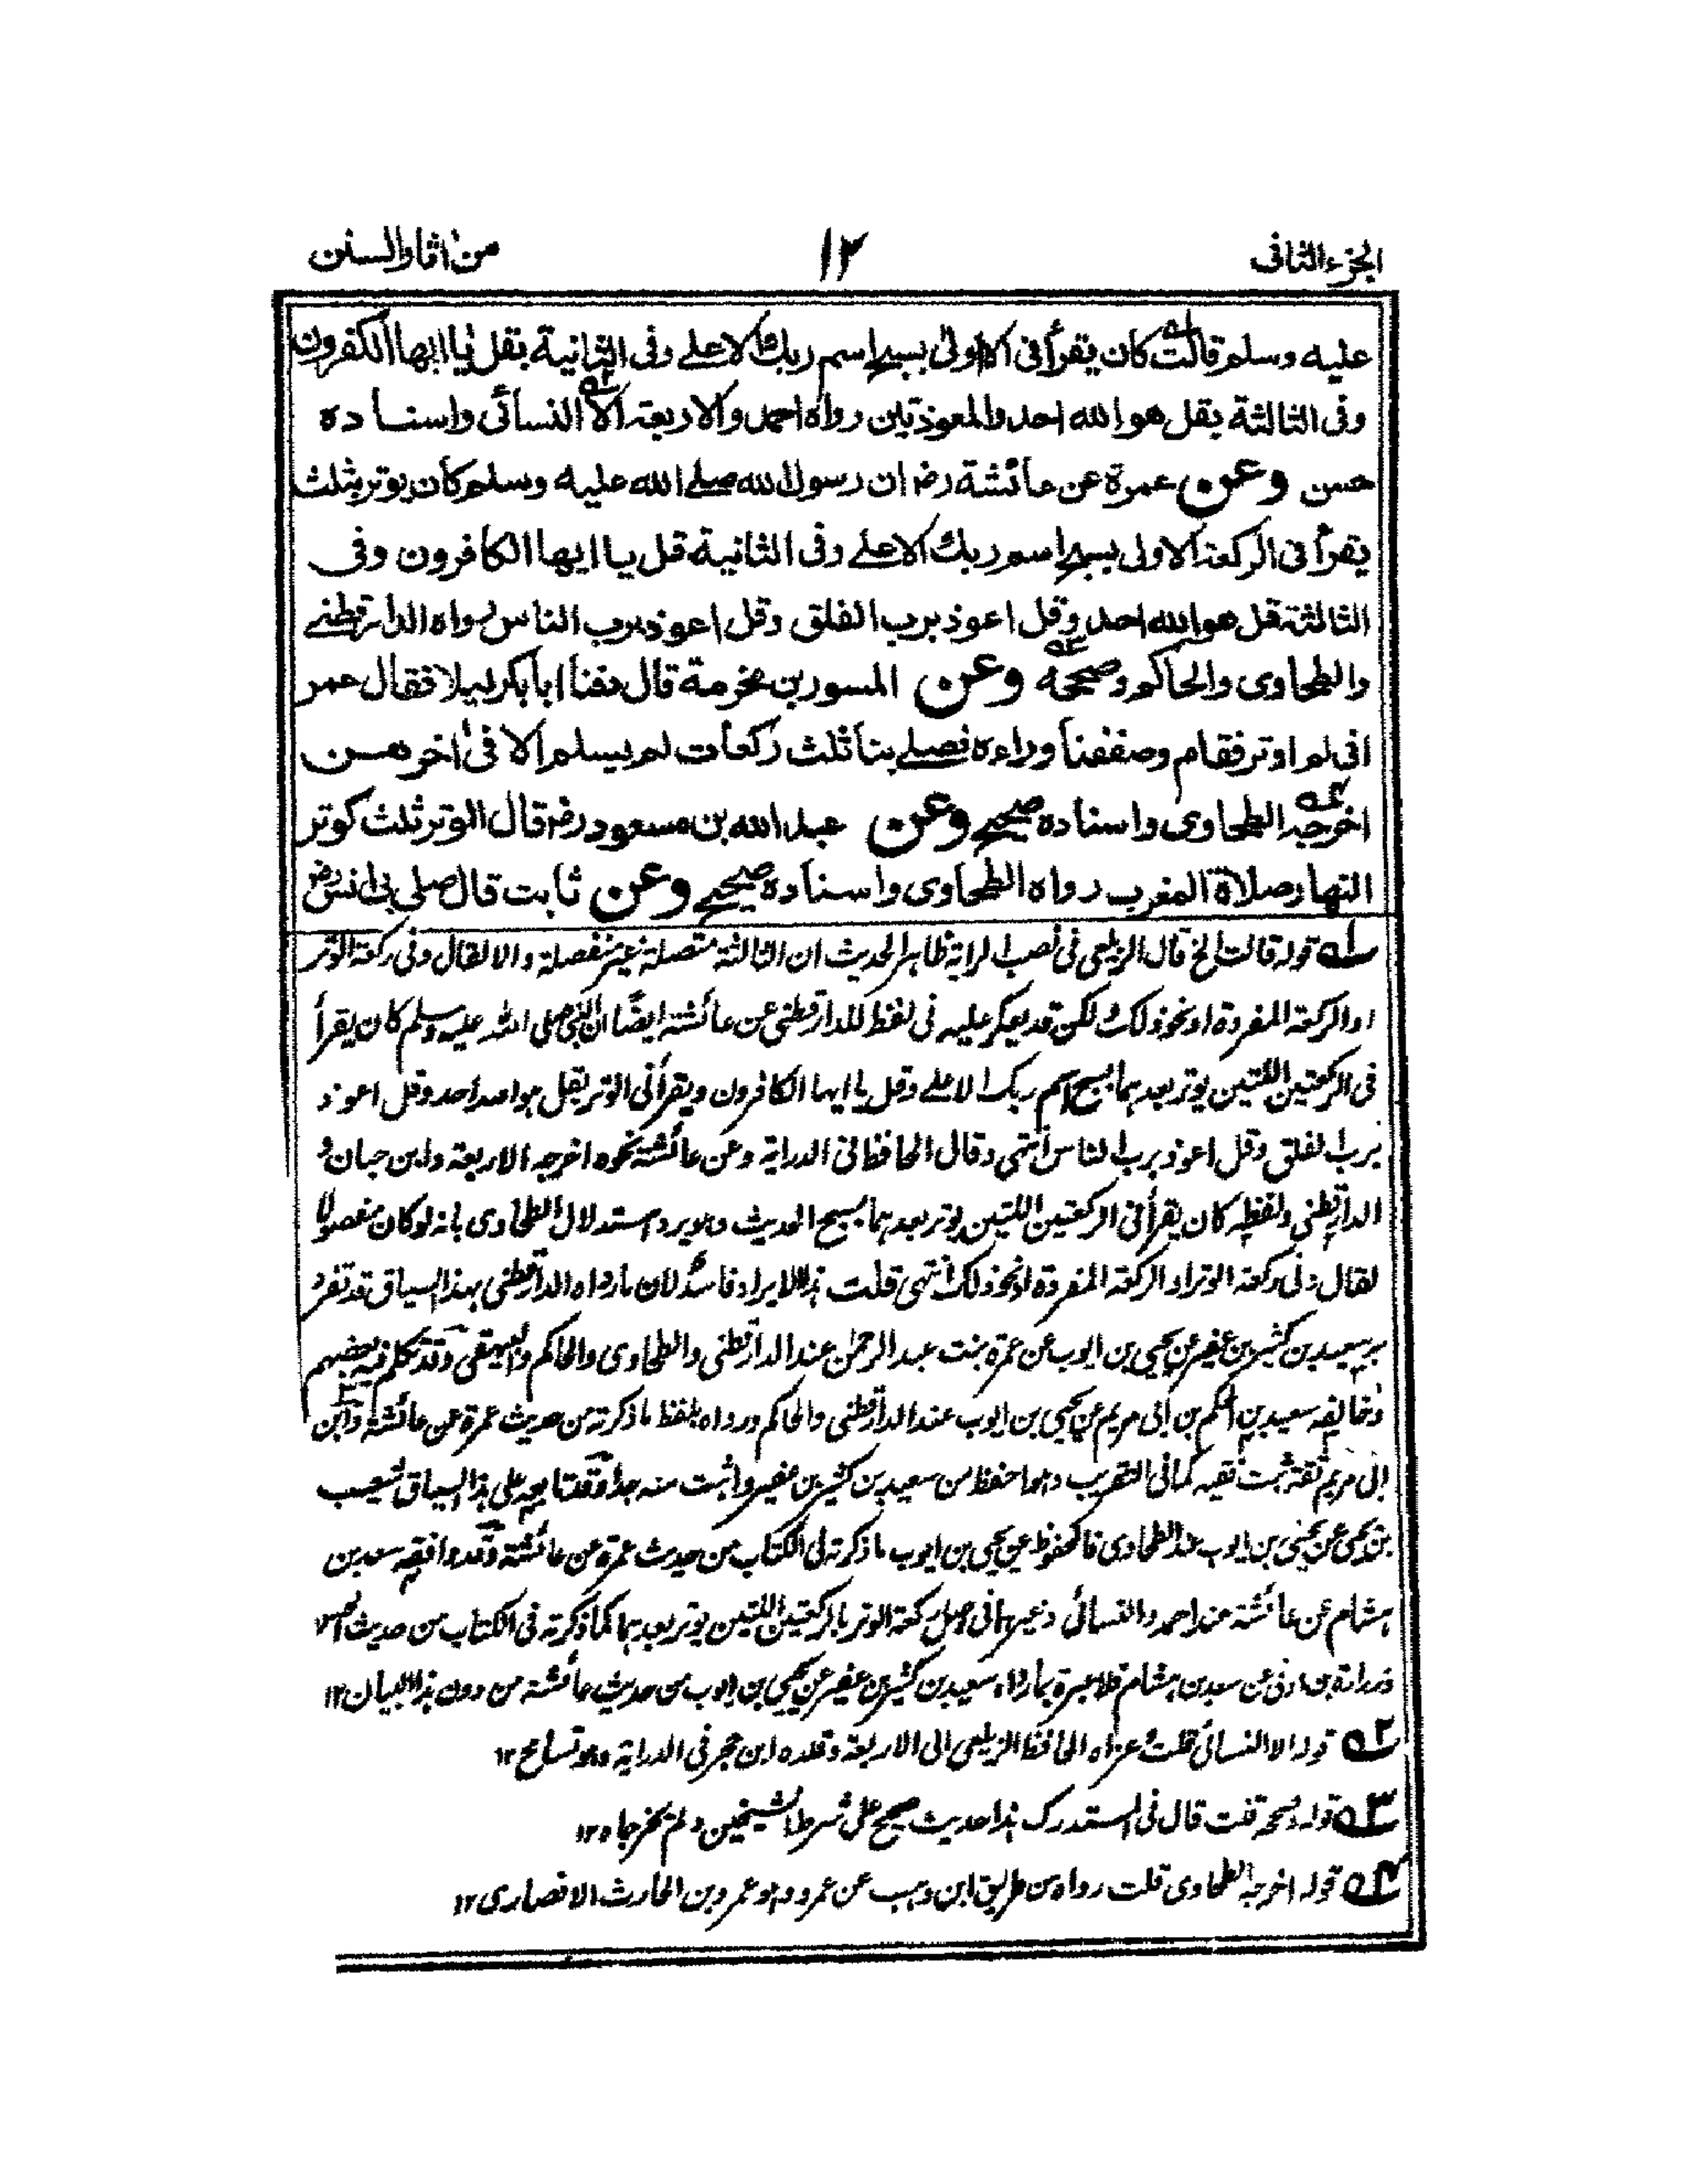 الجزء الثانى
١٢
من اثار السنن
عليه وسلم قالت كان يقرأ فى الاولى بسبح اسم ربك الاعلے وفى الثانية بقل يٰا ايها الكفرون
وفى الثالثة بقل هو الله احد والمعوذتين رواه احمد والاربعة الا النسائى واسنادہ
حسن وعن عمرة عن عائشة رض ان رسول الله صلے الله عليه وسلم كان يوتر بثلث
يقرأ فى الركعة الاولى بسبح اسم ربك الاعلے وفى الثانية قل يا ايها الكافرون وفى
الثالثة قل هو الله احد وقل اعوذ برب الفلق وقل اعوذ برب الناس رواه الدارقطنے
والطحاوى والحاكم وصححه وعن المسور بن مخرمة قال دفنا ابا بكر ليلا فقال عمر
انى لم اوتر فقام وصففنا وراءه فصلے بنا ثلث ركعات لم يسلم الا فى اٰخرهـن
اخرجه الطحاوى واسناده صحيح وعن عبد الله بن مسعود رض قال الوتر ثلث كوتر
النهار صلاة المغرب رواه الطحاوى واسناده صحيح وعن ثابت قال صلى بى انس رض
١ قوله قالت الخ قال الزيلعى فى نصب الراية ظاهر الحديث ان الثالثة متصلة غير منفصلة والا لقال وفى ركعة الوتر
او الركعة المفردة او نحو ذلك لكن قد يعكر عليه فى لفظ للدارقطنى عن عائشة ايضًا ان النبى صلى الله عليه وسلم كان يقرأ
فى الركعتين اللتين يوتر بعدهما بسبح اسم ربك الاعلے وقل يا ايها الكافرون ويقرأ فى الوتر بقل هو الله احد وقل اعوذ
برب الفلق وقل اعوذ برب الناس انتهى وقال الحافظ فى الدراية وعن عائشة نحوه اخرجه الاربعة وابن حبان و
الدارقطنى ولفظه كان يقرأ فى الركعتين اللتين يوتر بعدهما بسبح الحديث وهو يرد استدلال الطحاوى بانه لو كان مفصولا
لقال وفى ركعة الوتر او الركعة المفردة او نحو ذلك انتهى قلت هذا الايراد فاسد لان ما رواه الدارقطنى بهذا السياق قد تفرد
به سعيد بن كثير بن عفير عن يحيى بن ايوب عن عمرة بنت عبد الرحمٰن عند الدارقطنى والطحاوى والحاكم والبيهقى وقد تكلم فيه بعضهم
وخالفه سعيد بن الحكم بن ابى مريم عن يحيى بن ايوب عند الدارقطنى والحاكم ورواه بلفظ ما ذكرته من حديث عمرة عن عائشة وابن
ابى مريم ثقة ثبت فقيه كما فى التقريب وهو احفظ من سعيد بن كثير بن عفير واثبت منه جدا وقد تابعه على هذا السياق شعيب
بن يحيى عن يحيى بن ايوب عند الطحاوى فالمحفوظ عن يحيى بن ايوب ما ذكرته فى الكتاب من حديث عمرة عن عائشة وقد وافقه سعد بن
هشام عن عائشة عند احمد والنسائى وغيرهما فى وصل ركعة الوتر بالركعتين اللتين يوتر بعدهما كما ذكرته فى الكتاب من حديث
زرارة بن اوفى عن سعد بن هشام فلا عبرة بما رواه سعيد بن كثير بن عفير عن يحيى بن ايوب من حديث عائشة من دون هذا البيان ١٢
٢ قوله الا النسائى قلت عزاه الحافظ الزيلعى الى الاربعة وقلده ابن حجر فى الدراية وهو تسامح ١٢
٣ قوله وصححه قلت قال فى المستدرك هذا حديث صحيح على شرط الشيخين ولم يخرجاه ١٢
٤ قوله اخرجه الطحاوى قلت رواه من طريق ابن وهب عن عمرو وهو عمرو بن الحارث الانصارى ١٢